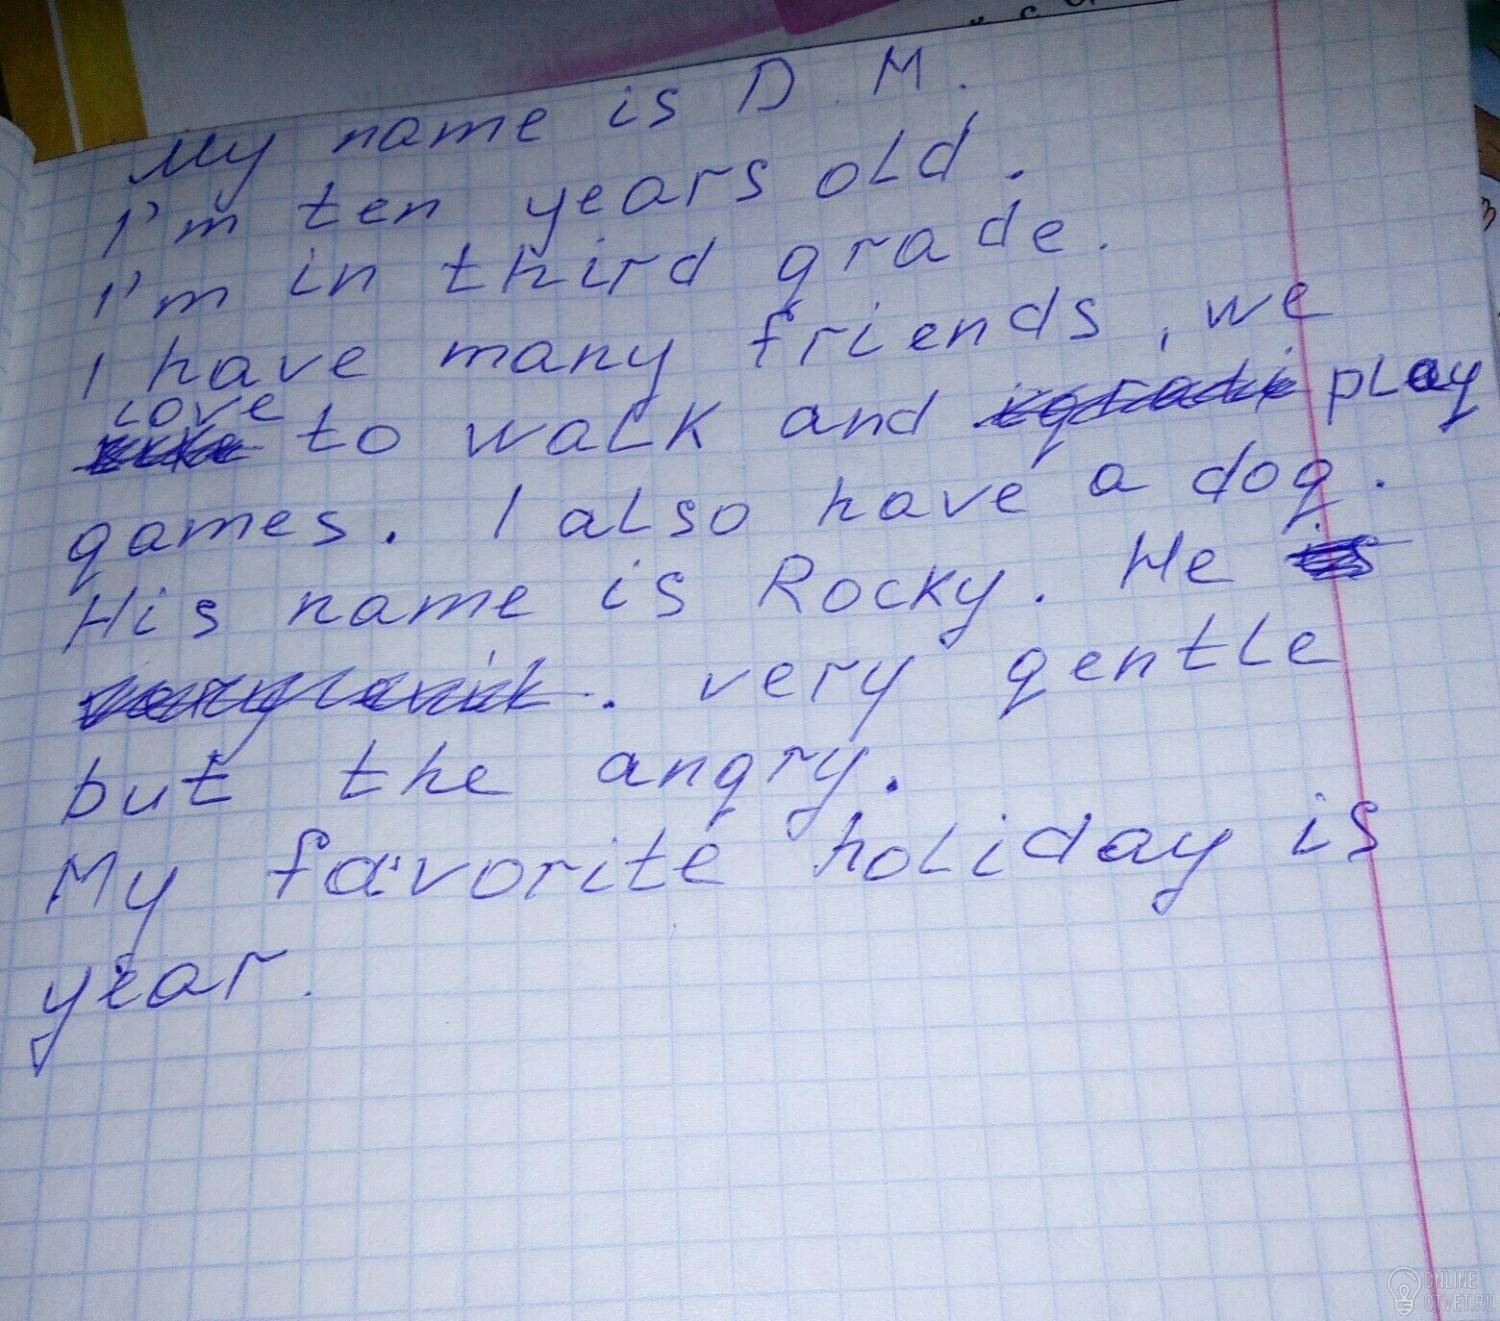 My name is D. M.
I'm ten years old.
I'm in third grade.
I have many friends, we
love to walk and play
games. I also have a dog.
His name is Rocky. He
. very gentle
but the angry.
My favorite holiday is
year.
ONLINE
OTVET.RU